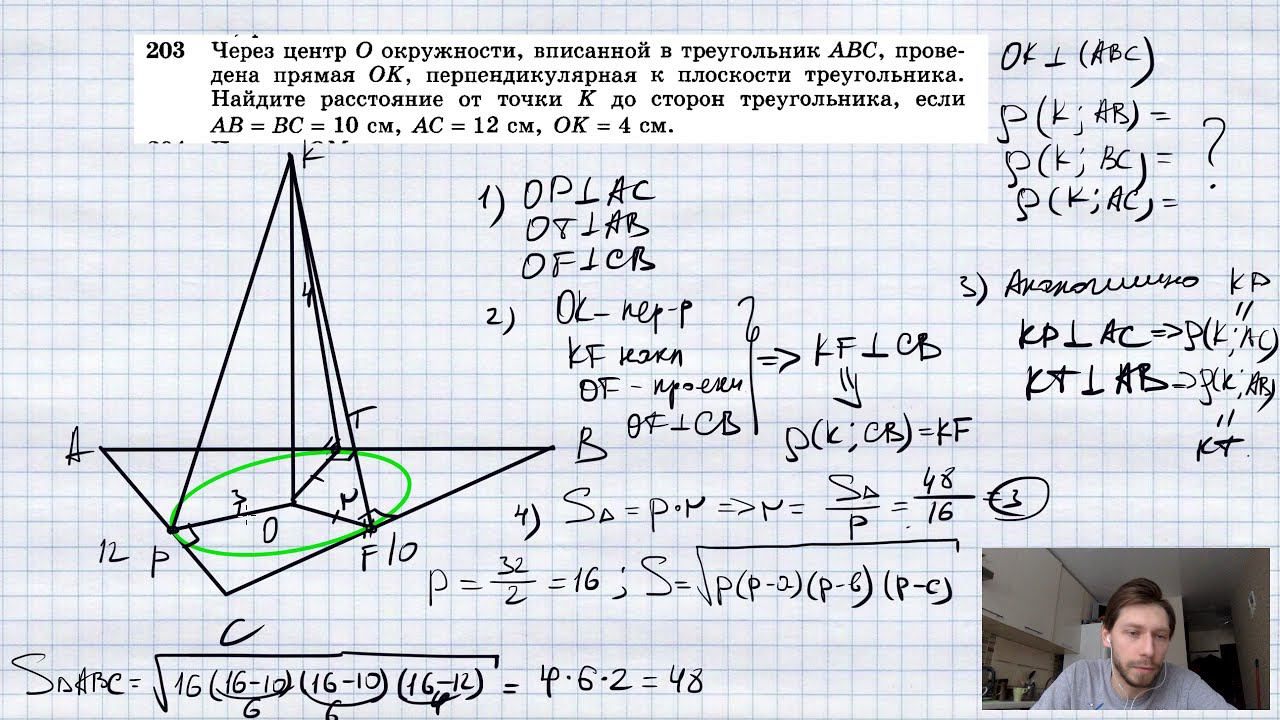 203 Через центр O окружности, вписанной в треугольник ABC, прове-
дена прямая OK, перпендикулярная к плоскости треугольника.
Найдите расстояние от точки K до сторон треугольника, если
AB = BC = 10 см, AC = 12 см, OK = 4 см.
OK ⊥ (ABC)
ρ(K; AB) =
ρ(K; BC) = ?
ρ(K; AC) =
K
4
T
A
B
3
r
O
12
P
F
10
C
1) OP ⊥ AC
OT ⊥ AB
OF ⊥ CB
2) OK – пер-р
KF накл
OF – проекц
OF ⊥ CB
=> KF ⊥ CB
⇓
ρ(K; CB) = KF
3) Аналогично KP
||
KP ⊥ AC => ρ(K; AC)
KT ⊥ AB => ρ(K; AB)
||
KT.
4) S△ = p·r => r = S△/p = 48/16 = 3
p = 32/2 = 16 ; S = √p(p-a)(p-b)(p-c)
S△ABC = √16(16-10)(16-10)(16-12) = 4·6·2 = 48
6 6 4